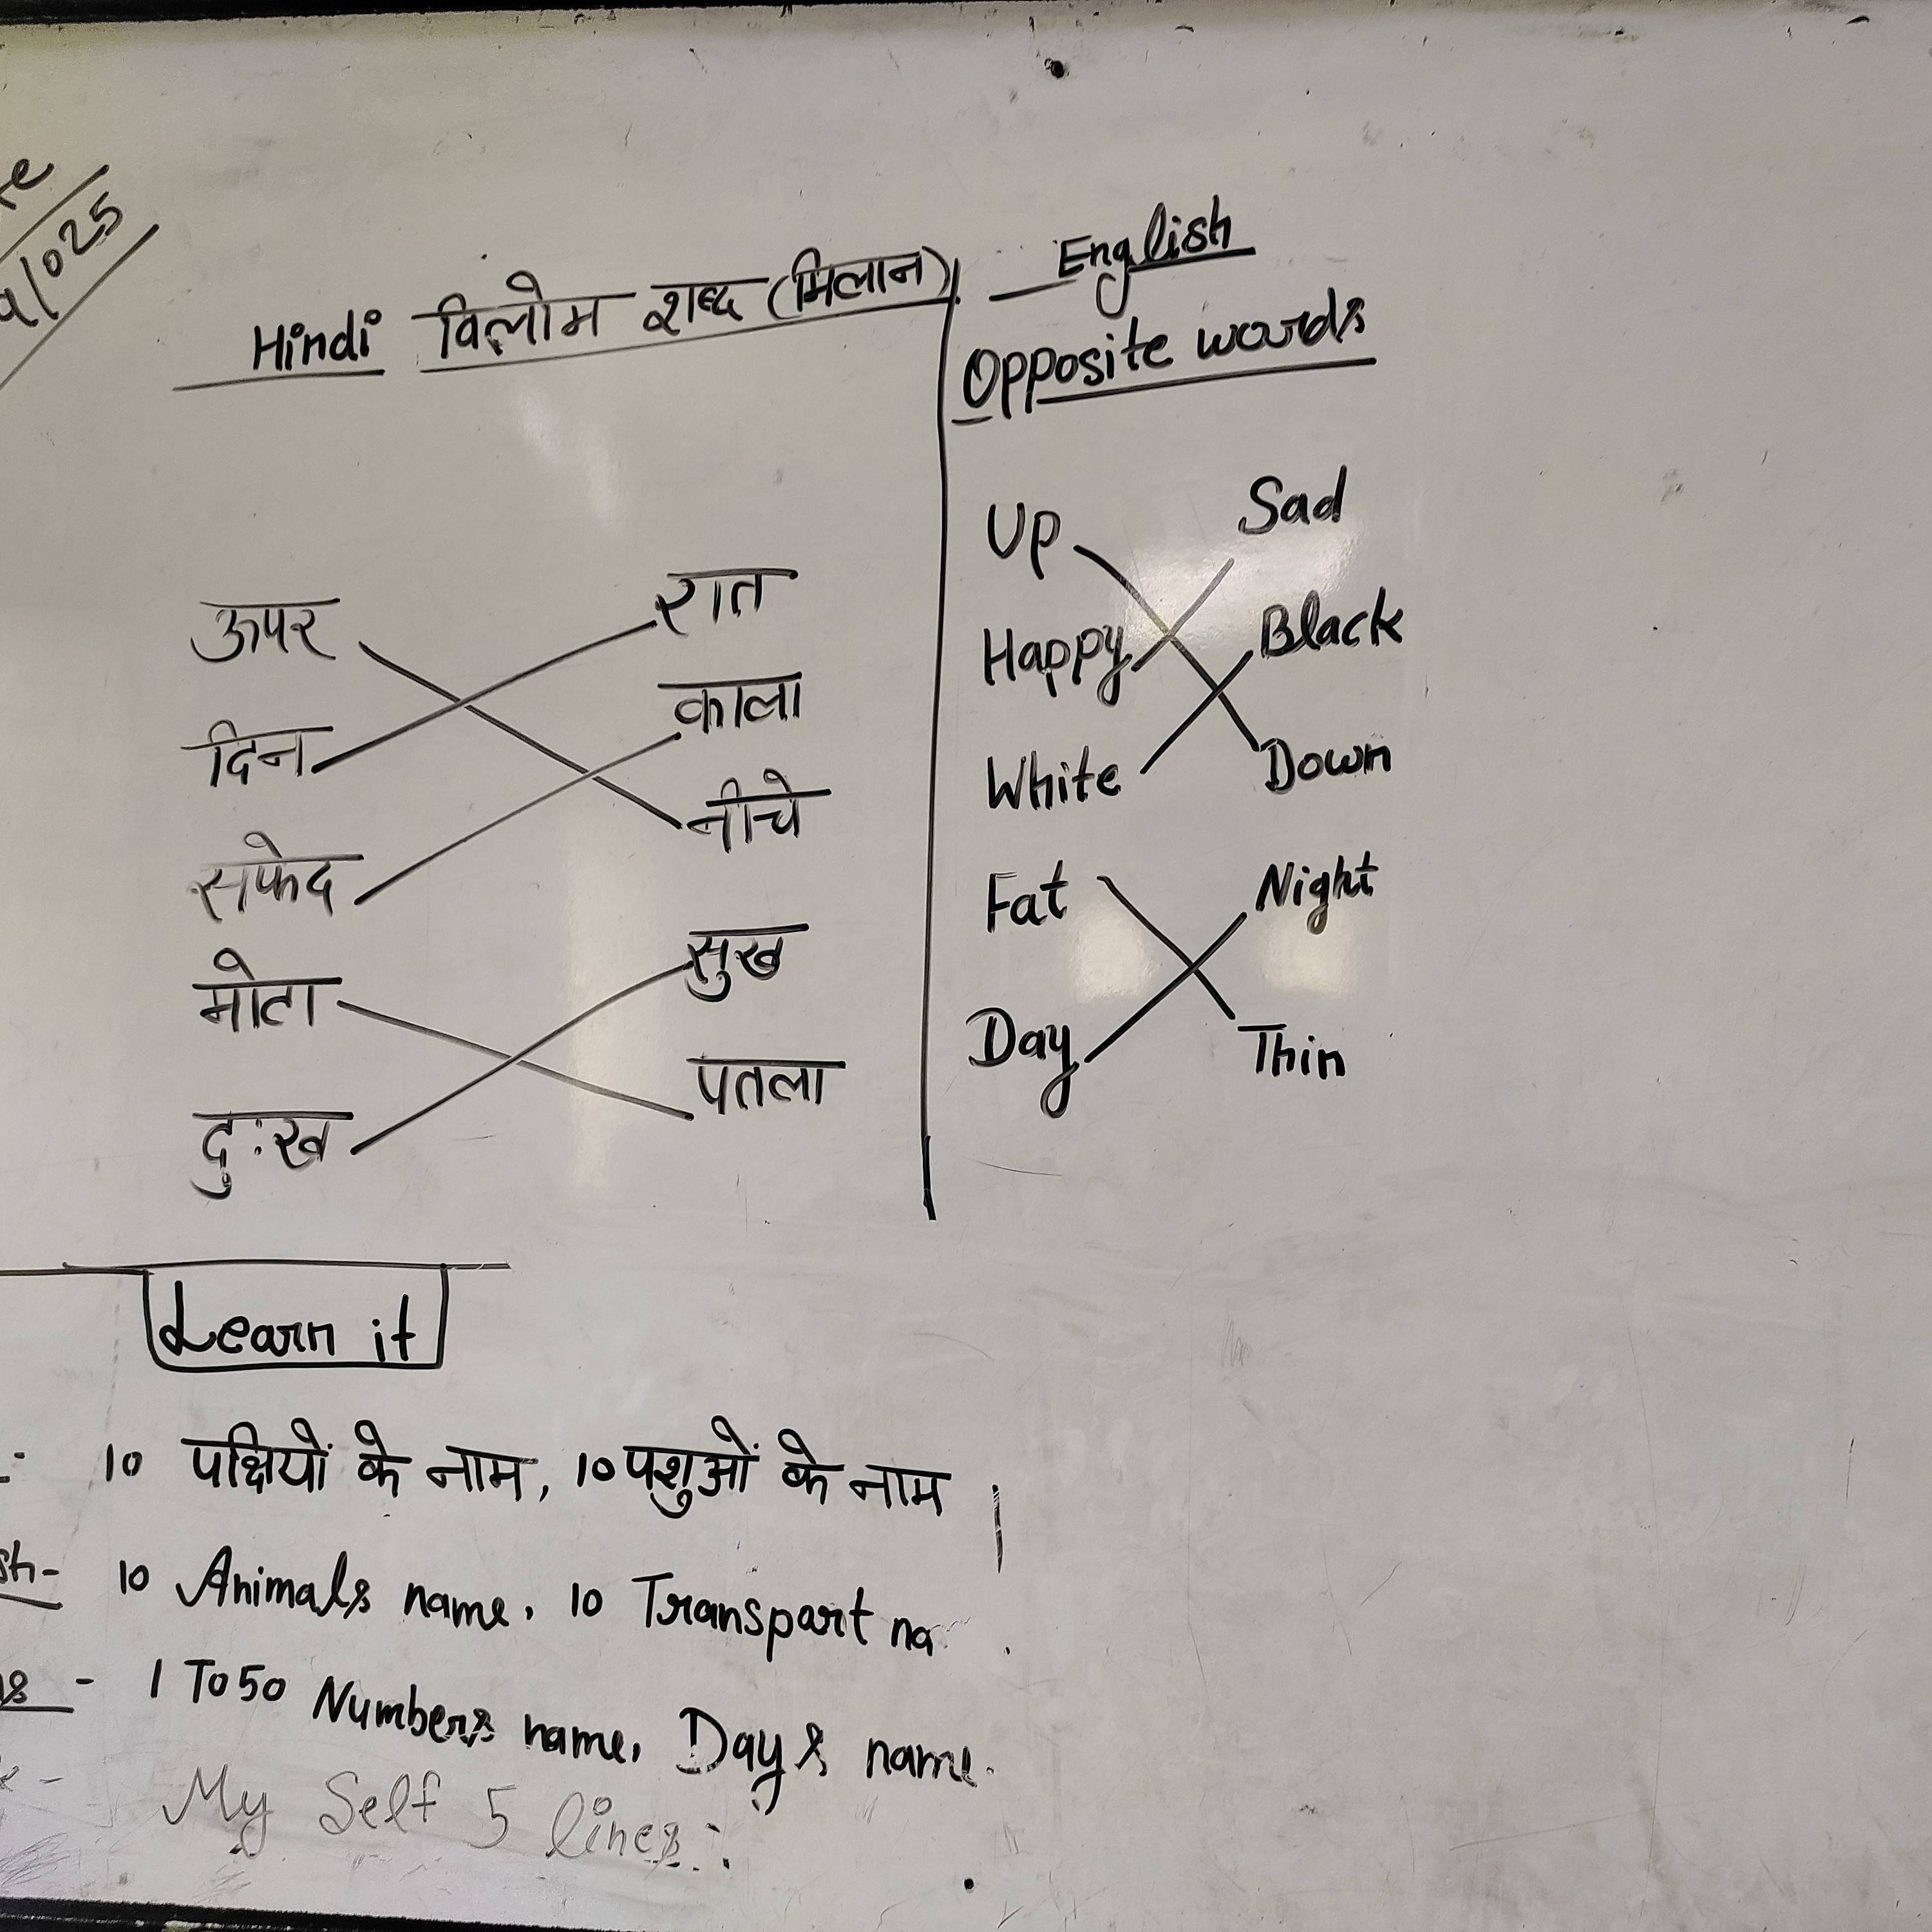 Hindi विलोम शब्द (मिलान)
English
Opposite words
ऊपर रात
दिन काला
सफेद नीचे
मोटा सुख
दुःख पतला
Up Sad
Happy Black
White Down
Fat Night
Day Thin
Learn it
10 पक्षियों के नाम, 10 पशुओं के नाम
10 Animals name, 10 Transpart na
1 To 50 Numbers name, Days name.
My Self 5 lines.